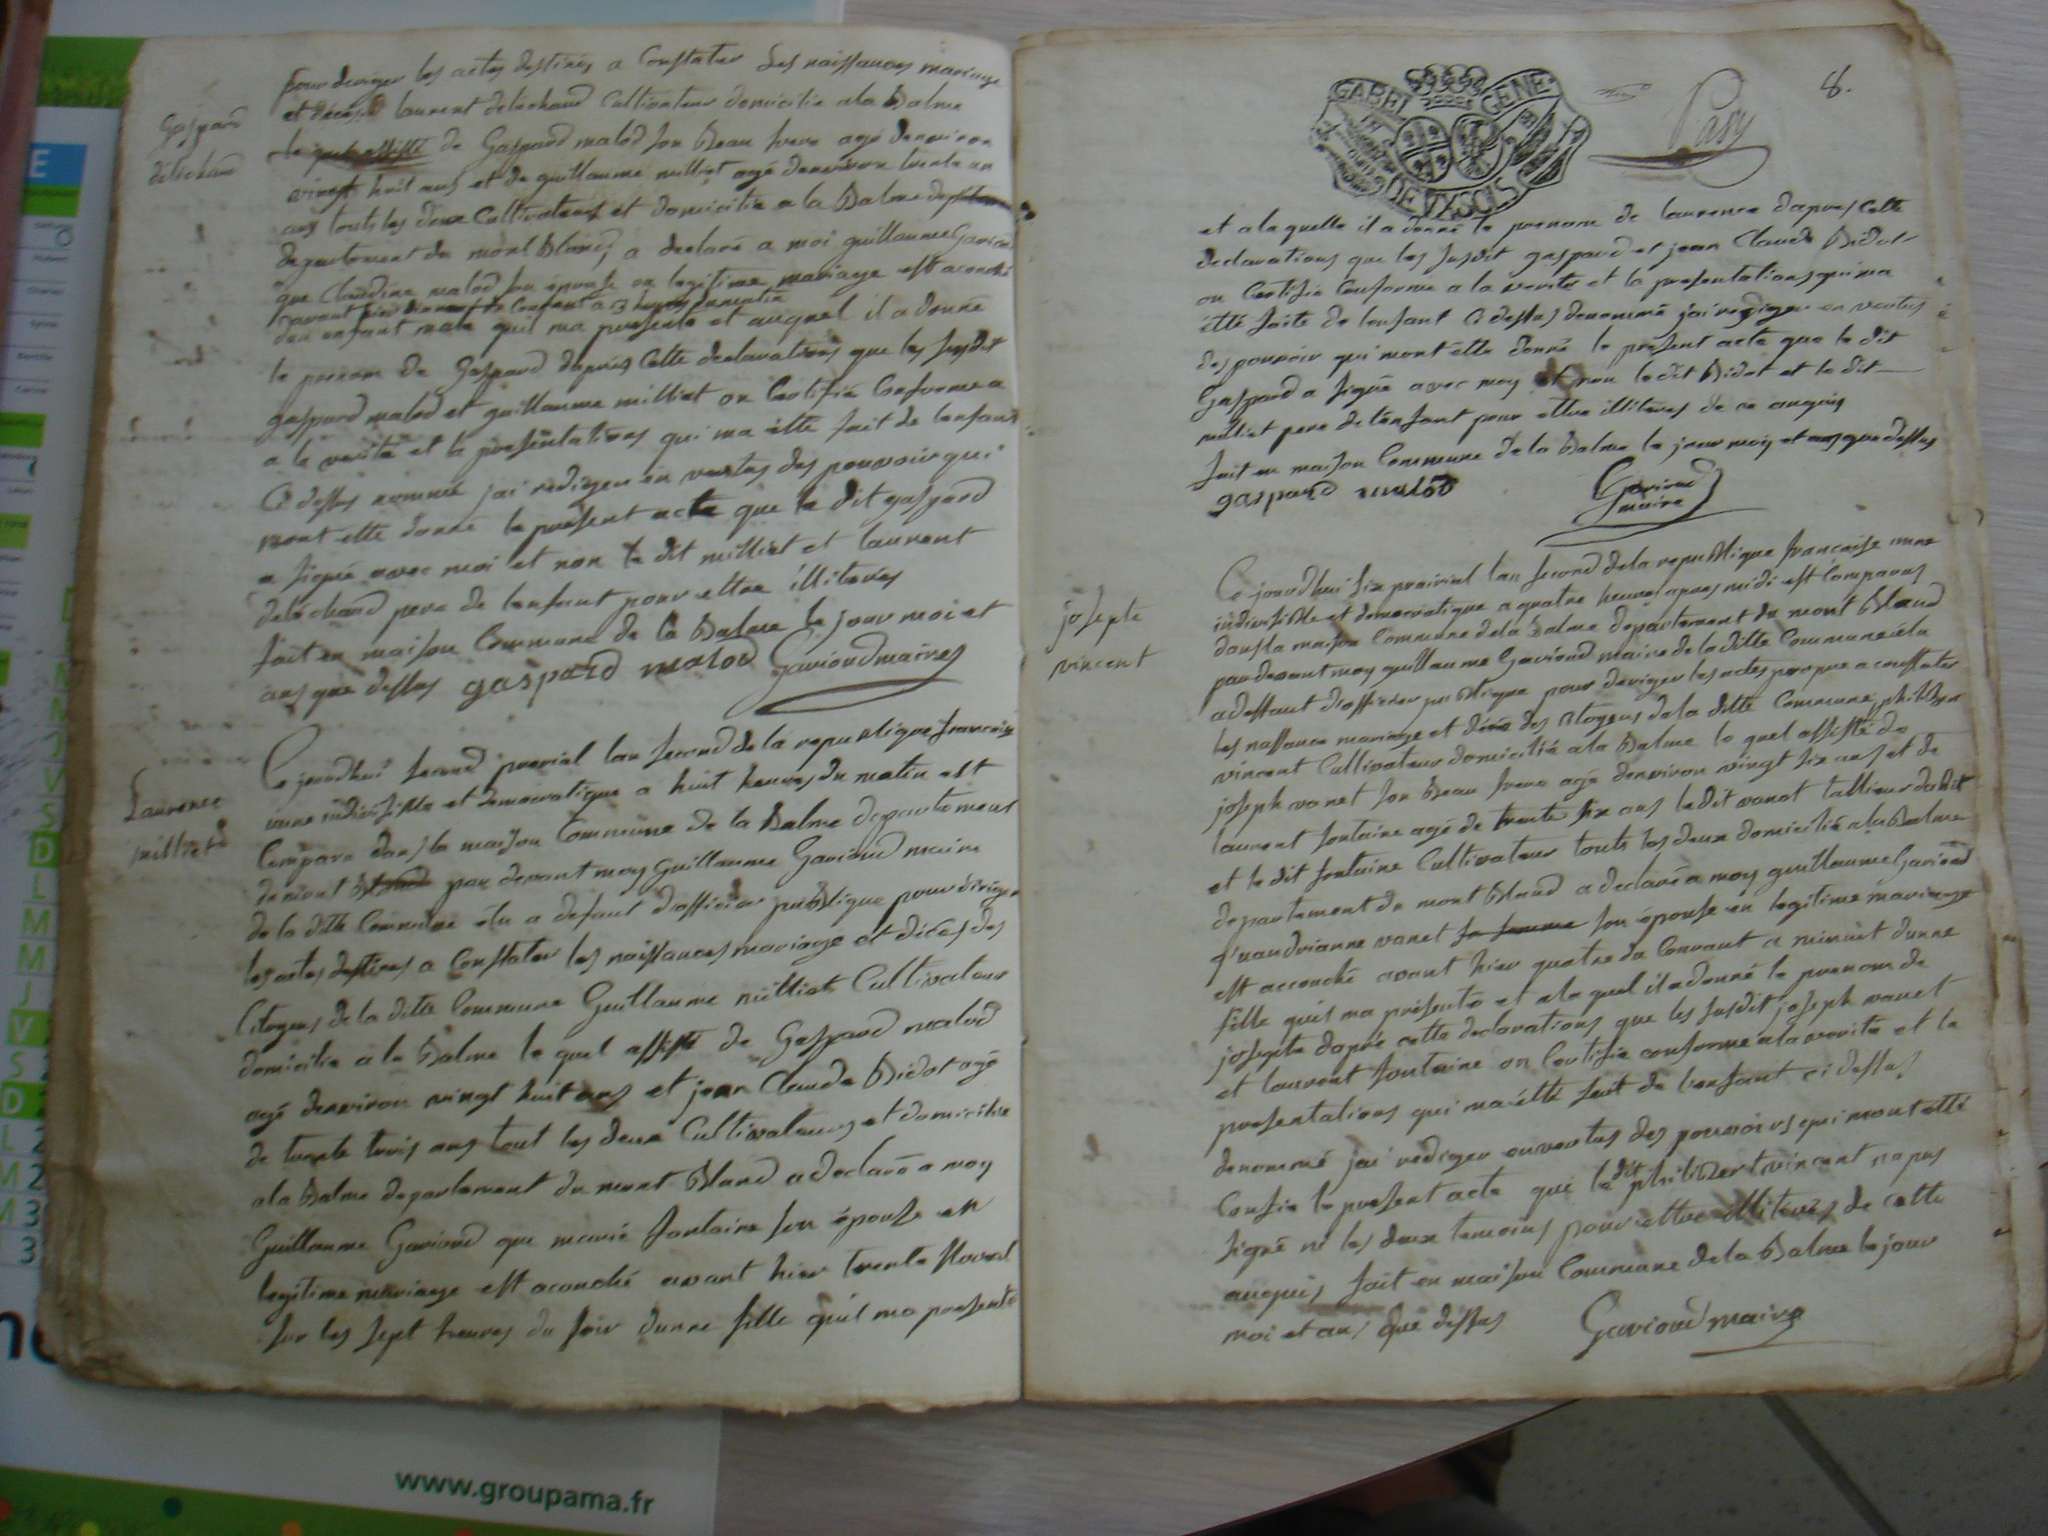 pour deriger les actes destinés a Constater Les naissances mariage
et décés laurent deléchaud Cultivateur domicilié ala Balme
le quel assisté de Gaspard malod son Beau frere agé denviron
vingt huit ans et de guillaume milliet agé denviron trente un
ans touts les deux Cultivateurs et domicilie a la Balme
departement du mont Blanc, a declaré a moi guillaume Gavioud
que Claudine malod son épouse en legitime mariage est acouché
avant hier
dun enfant male quil ma presenté et auquel il a donné
le prenom de Gaspard daprés Cette declarations que les susdit
gaspard malod et guillaume milliet on Certifié Conforme a
a la verité et la présentations qui ma étté fait de lenfant
Ci dessus nommé jai redigeu en vertus des pouvoir qui
mont ette donné le présent acte que le dit gaspard
a signé avec moi et non le dit milliet et laurent
deléchaud pere de lenfant pour ettre illiterés
fait en maison Commune de la Balme le jour moi et
ans que dessus gaspard malod Gavioud maires
Gaspard
deléchaud
Ce jourdhui second prerial lan second de la republique francaise
unne indivisible et democratique a huit heures du matin est
Comparu dans la maison Commune de la Balme departement
du mont Bland par devant moy guillaume Gavioud maire
de la ditte Commune élu a defaut dofficier publique pour diriger
les actes destines a Constater les naissances mariage et décés des
Citoyens de la ditte Commune Guillaume milliet Cultivateur
domicilie a la Balme le quel assisté de Gaspard malod
agé denviron vingt huit ans et jean Claude Bidat agé
de trente trois ans tout les deux Cultivateurs et domicilie
ala Balme departement du mont Bland a declaré a moy
Guillaume Gavioud que marie fontaine son épouse en
legitime mariage est acouché avant hier trente floreal
sur les sept heures du soir dunne fille quil ma presenté
Laurence
milliet
8.
GABEL GENE
DE TASCIS
et ala quelle il a donné le prenom de laurence dapres Cette
declarations que les susdit gaspard et jean Claude Bidat
on Certifié Conforme a la verite et la presentations qui ma
étté faite de lenfant Ci dessus denommé jai rediger en vertus
des pouvoir qui mont étté donné le présent acte que le dit
Gaspard a signé avec moy et non le dit Bidat et le dit
milliet pere de lénfant pour ettre illiterés de ce anquis
fait en maison Commune de la Balme le jour moy et ans que dessus
gaspard malod Gavioud
maire
Ce jourdhui six prairial lan second de la republique francaise unne
indivisible et democratique a quatre heures apres midi est Comparus
dans la maison Commune dela Balme departement du mont Bland
par devant moy guillaume Gavioud maire de la ditte Commune élu
a deffaut dofficier publique pour deriger les actes propre a constater
les naissance mariage et décés des Citoyens dela ditte Commune philiber
vincent Cultivateur domicilié ala Balme le quel assisté de
joseph vanet son Beau frere agé denviron vingt six ans et de
laurent fontaine agé de trente six ans le dit vanet tallieur dabit
et le dit fontaine Cultivateur touts les deux domicilié ala Balme
departement du mont Bland a declaré a moy guillaume Gavioud
vanet sa femme son épouse en legitime mariage
est accouché avant hier quatre du Courant a minuit dunne
fille quil ma présenté et ala quel il a donné le prenom de
josephte dapré cette declarations que les susdit joseph vanet
et laurent fontaine on Certifié conforme ala verite et la
presentations qui ma étté fait de lenfant ci dessus
denommé jai rediger en vertus des pouvoirs qui mont etté
Confié le present acte que le dit philibert vincent na pas
signé ni les deux temoins pour ettre illiterés de cette
anquis, fait en maison Commune de la Balme le jour
moi et ans que dessus Gavioud maire
josephte
vincent
E
www.groupama.fr